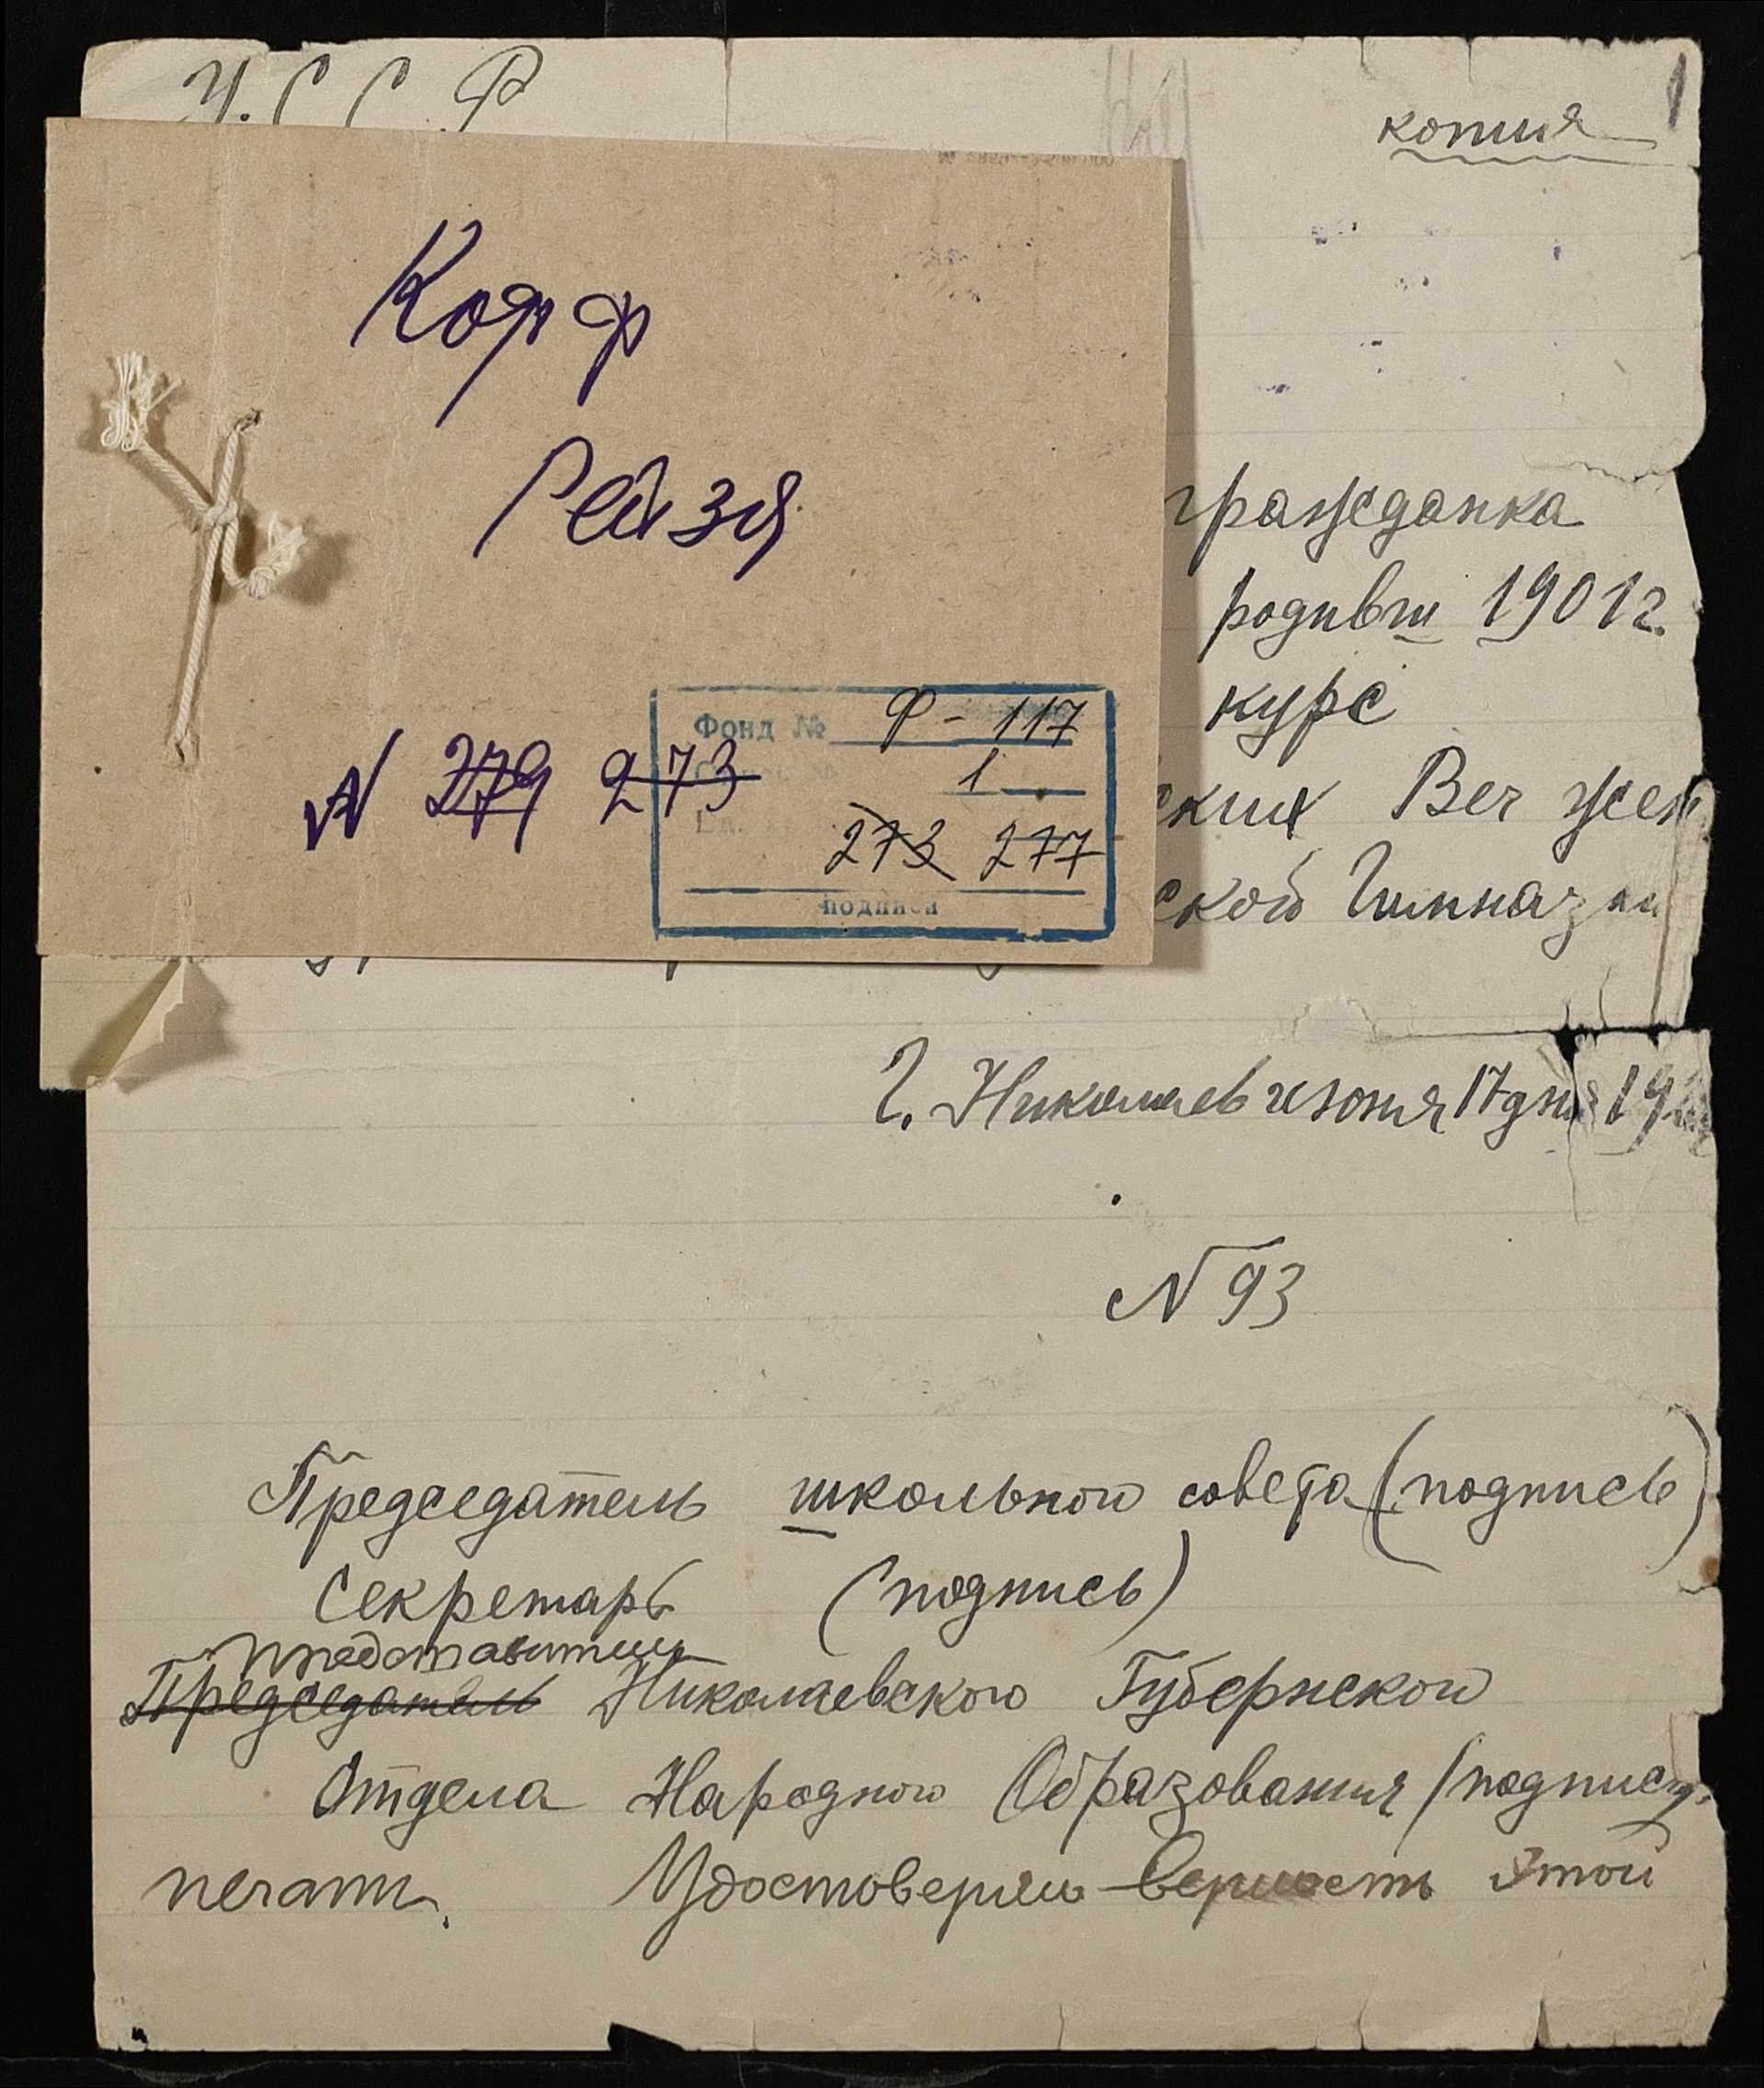 У. С С Р
копия
1
Корф
Рейзя
N 279 273
Фонд № Ф - 117
1
273 277
подписи
гражданка
родивш 1901г.
курс
ских Веч жен
ской Гимназии
Г. Николаев июня 17 дня 19
N 93
Председатель школьного совета (подпись)
Секретарь (подпись)
представитель
Председатель Николаевского Губернского
Отдела Народного Образования (подпись)
печати. Удостоверяю верность этой